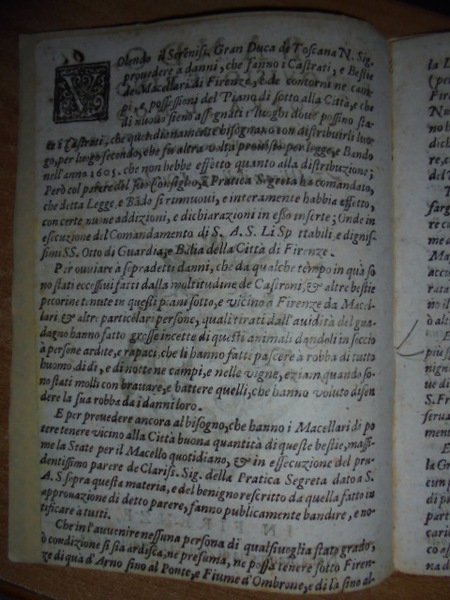 VOlendo il Sereniss. Gran Duca de Toscana N. Sig.
prouedere à danni, che fanno i Castrati, e Bestie
de Macellari di Firenze, ò de contorni ne cam
pi, e, possessioni del Piano di sotto alla Città, e che
di nuouo sieno assegnati i luoghi doue possino sta-
re i Castrati, che quotidianamente bisognano con distribuirli luo-
go, per luogo secondo, che fu altra volta prouisto per legge, e Bando
nell'anno 1605. che non hebbe effetto quanto alla distribuzione;
Però col parere del suo Consiglio, ò Pratica Segreta ha comandato,
che detta Legge, e Bãdo si rinnuoui, e interamente habbia effetto,
con certe nuoue addizioni, e dichiarazioni in esso inserte; Onde in
essecuzione del Comandamento di S. A. S. Li Sp ttabili e dignis-
simi SS. Otto di Guardia, e Balìa della Città di Firenze.
Per ouuiare a sopradetti danni, che da qualche tempo in quà so
no stati eccessiui fatti dalla moltitudine de Castroni, & altre bestie
pecorine tenute in questi piani sotto, e vicino à Firenze da Macel-
lari, & altre particolari persone, quali tirati dall'auidità del gua-
dagno hanno fatto grosse incette di questi animali dandoli in soccio
à persone ardite, e rapaci, che li hanno fatti pascere à robba di tutto
huomo, di dì, e di notte ne campi, e nelle vigne, eziam quando so-
no stati molli con brauare, e battere quelli, che hanno voluto difen
dere la sua robba da i danni loro.
E per prouedere ancora al bisogno, che hanno i Macellari di po
tere tenere vicino alla Città buona quantità di queste bestie, massi-
me la State per il Macello quotidiano, & in essecuzione del pru-
dentissimo parere de Clariss. Sig. della Pratica Segreta dato a S.
A. S. sopra questa materia, e del benigno rescritto da quella fatto in
approuazione di detto parere, fanno publicamente bandire, e no-
tificare à tutti.
Che in l'auuenire nessuna persona di qualsiuoglia stato, grado,
ò condizione si sia ardisca, ne presuma, ne possa tenere sotto Firen-
ze di quà d'Arno sino al Ponte, e Fiume d'Ombrone, e di là sino al-